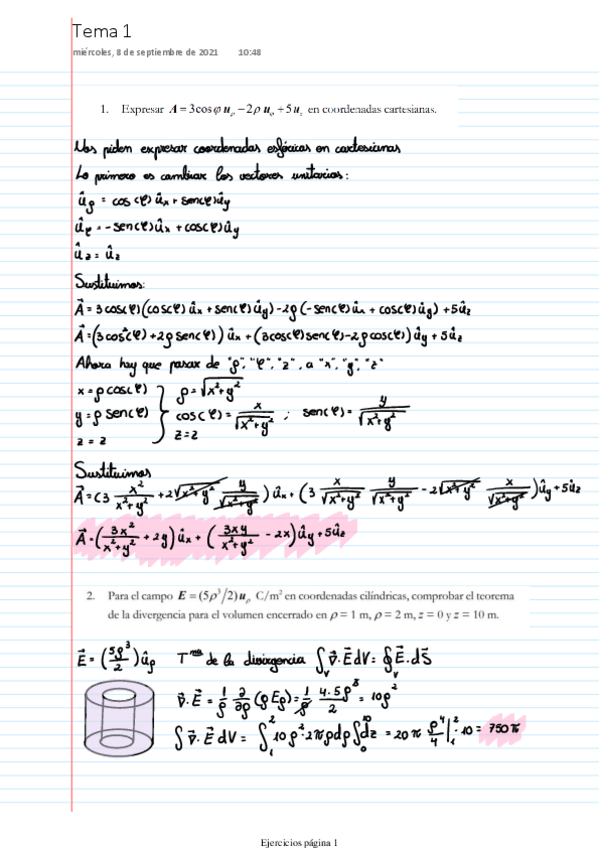 Tema 1
miércoles, 8 de septiembre de 2021 10:48
1. Expresar A = 3cos φ uᵨ − 2ρ uᵩ + 5 u_z en coordenadas cartesianas.
Nos piden expresar coordenadas esféricas en cartesianas
Lo primero es cambiar los vectores unitarios:
ûᵨ = cos(φ) ûx + sen(φ) ûy
ûᵩ = -sen(φ) ûx + cos(φ) ûy
ûz = ûz
Sustituimos:
A⃗ = 3cos(φ)(cos(φ) ûx + sen(φ) ûy) - 2ρ(-sen(φ) ûx + cos(φ) ûy) + 5ûz
A⃗ = (3cos²(φ) + 2ρ sen(φ)) ûx + (3cos(φ) sen(φ) - 2ρ cos(φ)) ûy + 5ûz
Ahora hay que pasar de "ρ", "φ", "z", a "x", "y", "z"
x = ρ cos(φ) ρ = √(x²+y²)
y = ρ sen(φ) cos(φ) = x/√(x²+y²) ; sen(φ) = y/√(x²+y²)
z = z z = z
Sustituimos
A⃗ = (3 x²/(x²+y²) + 2√(x²+y²) y/√(x²+y²)) ûx + (3 x/√(x²+y²) y/√(x²+y²) - 2√(x²+y²) x/√(x²+y²)) ûy + 5ûz
A⃗ = (3x²/(x²+y²) + 2y) ûx + (3xy/(x²+y²) - 2x) ûy + 5ûz
2. Para el campo E = (5ρ³/2) uᵨ C/m² en coordenadas cilíndricas, comprobar el teorema
de la divergencia para el volumen encerrado en ρ = 1 m, ρ = 2 m, z = 0 y z = 10 m.
E⃗ = (5ρ³/2) ûᵨ Tᵐᵃ de la divergencia ∫ᵥ ∇⃗·E⃗ dV = ∮ᵥ E⃗·dS⃗
∇⃗·E⃗ = 1/ρ ∂/∂ρ (ρEᵨ) = 1/ρ 4·5ρ³/2 = 10ρ²
∫ᵥ ∇⃗·E⃗ dV = ∫₁² 10ρ² 2πρdρ ∫₀¹⁰ dz = 20π ρ⁴/4 |₁² · 10 = 750π
Ejercicios página 1